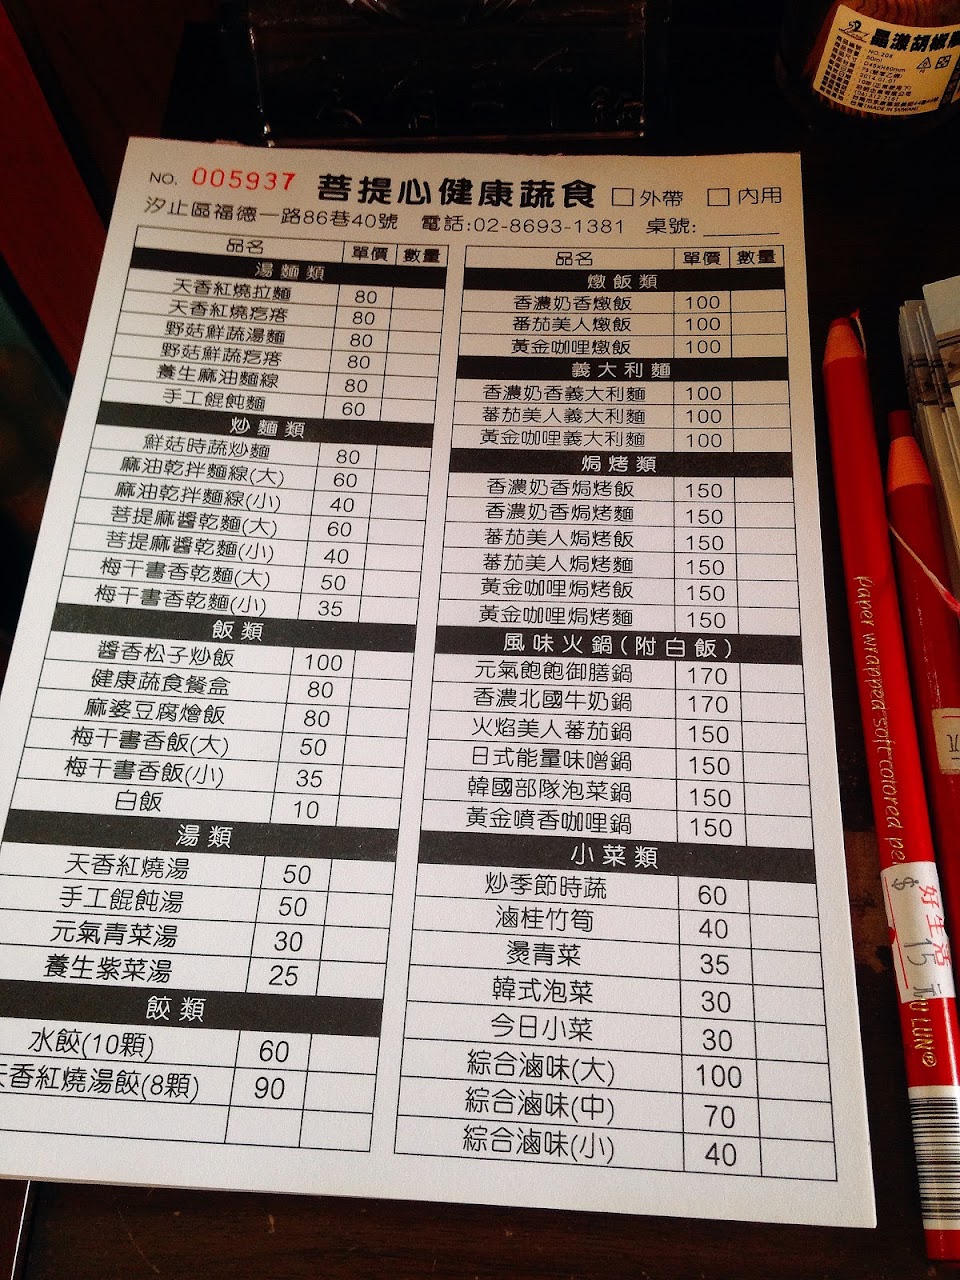 NO. 005937 菩提心健康蔬食 □外帶 □內用
汐止區福德一路86巷40號 電話:02-8693-1381 桌號:
品名 單價 數量
湯麵類
天香紅燒拉麵 80
天香紅燒疙瘩 80
野菇鮮蔬湯麵 80
野菇鮮蔬疙瘩 80
養生麻油麵線 80
手工餛飩麵 60
炒麵類
鮮菇時蔬炒麵 80
麻油乾拌麵線(大) 60
麻油乾拌麵線(小) 40
菩提麻醬乾麵(大) 60
菩提麻醬乾麵(小) 40
梅干書香乾麵(大) 50
梅干書香乾麵(小) 35
飯類
醬香松子炒飯 100
健康蔬食餐盒 80
麻婆豆腐燴飯 80
梅干書香飯(大) 50
梅干書香飯(小) 35
白飯 10
湯類
天香紅燒湯 50
手工餛飩湯 50
元氣青菜湯 30
養生紫菜湯 25
餃類
水餃(10顆) 60
天香紅燒湯餃(8顆) 90
品名 單價 數量
燉飯類
香濃奶香燉飯 100
番茄美人燉飯 100
黃金咖哩燉飯 100
義大利麵
香濃奶香義大利麵 100
蕃茄美人義大利麵 100
黃金咖哩義大利麵 100
焗烤類
香濃奶香焗烤飯 150
香濃奶香焗烤麵 150
蕃茄美人焗烤飯 150
蕃茄美人焗烤麵 150
黃金咖哩焗烤飯 150
黃金咖哩焗烤麵 150
風味火鍋(附白飯)
元氣飽飽御膳鍋 170
香濃北國牛奶鍋 170
火焰美人蕃茄鍋 150
日式能量味噌鍋 150
韓國部隊泡菜鍋 150
黃金噴香咖哩鍋 150
小菜類
炒季節時蔬 60
滷桂竹筍 40
燙青菜 35
韓式泡菜 30
今日小菜 30
綜合滷味(大) 100
綜合滷味(中) 70
綜合滷味(小) 40
NO.208
80ml
D45XH80mm
2014.01.01
MADE IN TAIWAN
Paper wrapped soft colored pe
好生活
$ 15 元
LUN®